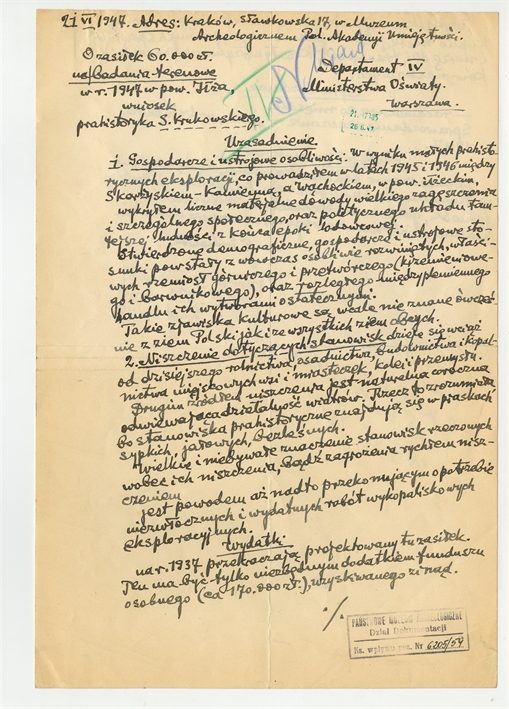 21 VI 1947. Adres: Kraków, Sławkowska 17, w Muzeum
Archeologicznem Pol. Akademji Umiejętności.
O zasiłek 60.000 zł.
na Badania terenowe
w r. 1947 w pow. Iłża,
wniosek
prahistoryka S. Krukowskiego.
Departament IV
Ministerstwa Oświaty.
Warszawa.
Uzasadnienie
1. Gospodarcze i ustrojowe osobliwości. W wyniku małych prahisto
rycznych eksploracji, co prowadziłem w latach 1945 i 1946 między
Skarżyskiem-Kamienną, a Wąchockiem, w pow. iłżeckim,
wykryłem liczne materjalne dowody wielkiego zagęszczenia
i szczególnego społecznego, oraz politycznego układu tam-
tejszej ludności z końca epoki lodowcowej.
Stwierdzone demograficzne, gospodarcze i ustrojowe sto-
sunki powstały z wówczas osobliwie rozwiniętych, właści-
wych rzemiosł górniczego i przetwórczego (krzemieniowe-
go i barwnikowego), oraz rozległego międzyplemiennego
handlu ich wytworami ostatecznymi.
Takie zjawiska kulturowe są wcale nie znane ówcześ
nie z ziem Polski jak i ze wszystkich ziem obcych.
2. Niszczenie dotyczących stanowisk dzieje się wciąż
od dzisiejszego rolnictwa, osadnictwa, budownictwa i kopal-
nictwa miejscowych wsi i miasteczek, kolei i przemysłu.
Drugim źródłem niszczenia jest naturalna coroczna
odwiewająca działalność wiatrów. Rzecz to zrozumiała,
bo stanowiska prahistoryczne znajdują się w piaskach
sypkich, jałowych, bezleśnych.
Wielkie i niebywałe znaczenie stanowisk rzeczonych
wobec ich niszczenia, bądź zagrożenia rychłem nisz-
czeniem
jest powodem aż nadto przekonującym o potrzebie
niezwłocznych i wydatnych robót wykopaliskowych
eksploracyjnych.
Wydatki
na r. 1937 przekraczają projektowany tu zasiłek.
Ten ma być tylko niezbędnym dodatkiem funduszu
osobnego (ca 170.000 zł.), uzyskiwanego zinąd.
./.
PAŃSTWOWE MUZEUM ARCHEOLOGICZNE
Dział Dokumentacji
Ks. wpływu Nr 6205/54